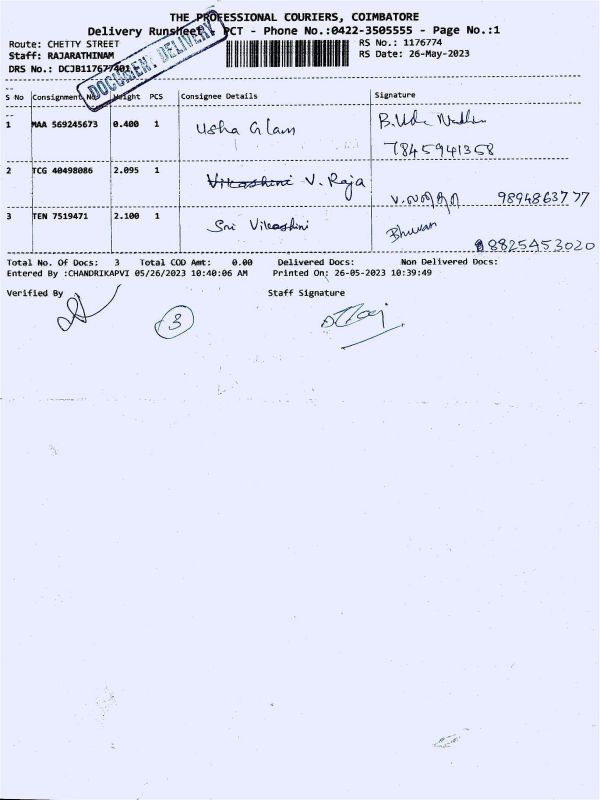 THE PROFESSIONAL COURIERS, COIMBATORE
Delivery Runsheet PCT - Phone No.:0422-3505555 - Page No.:1
Route: CHETTY STREET
RS No.: 1176774
Staff: RAJARATHINAM
RS Date: 26-May-2023
DRS No.: DCJB117677401
DOCUMENT DELIVERY
S No Consignment No Weight PCS Consignee Details Signature
1 MAA 569245673 0.400 1 Usha Glam B.
7845941358
2 TCG 40498086 2.095 1 Vikashini V. Raja
9894863777
3 TEN 7519471 2.100 1 Sri Vikashini Bhuvan
8825453020
Total No. Of Docs: 3 Total COD Amt: 0.00 Delivered Docs: Non Delivered Docs:
Entered By :CHANDRIKAPVI 05/26/2023 10:40:06 AM Printed On: 26-05-2023 10:39:49
Verified By Staff Signature
3